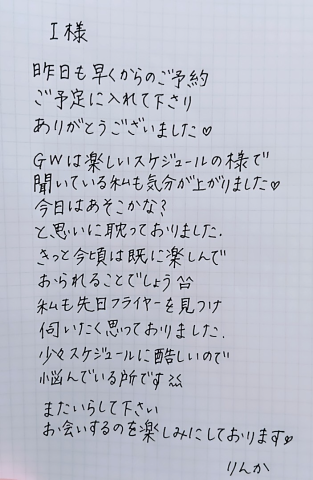 I 様
昨日も早くからのご予約
ご予定に入れて下さり
ありがとうございました♡
GWは楽しいスケジュールの様で
聞いている私も気分が上がりました♡
今日はあそこかな?
と思いに耽っておりました.
きっと今頃は既に楽しんで
おられることでしょう
私も先日フライヤーを見つけ
伺いたく思っておりました.
少々スケジュールに酷しいので
悩んでいる所です
またいらして下さい
お会いするのを楽しみにしております♡
りんか